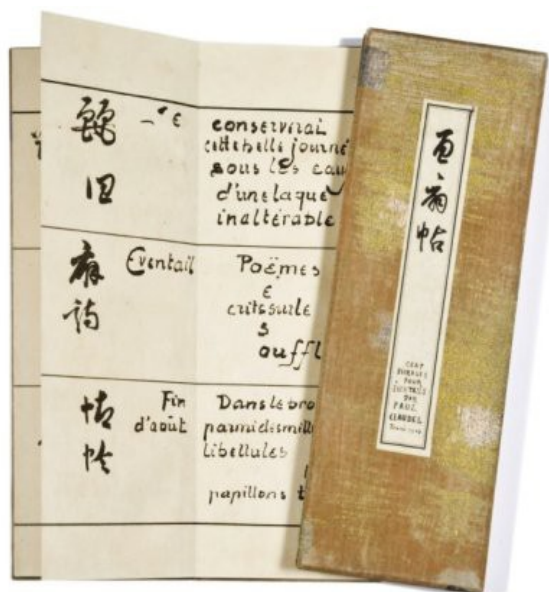 conserverai
cette belle journé
sous les eau
d'une laque
inaltérable
扇
詩
Eventail
Poëmes
E
crits sur le
S
ouffl
Fin
d'août
Dans le bro
parmi des mill
libellules
papillons t
百扇帖
CENT
PHRASES
POUR
EVENTAILS
PAR
PAUL
CLAUDEL